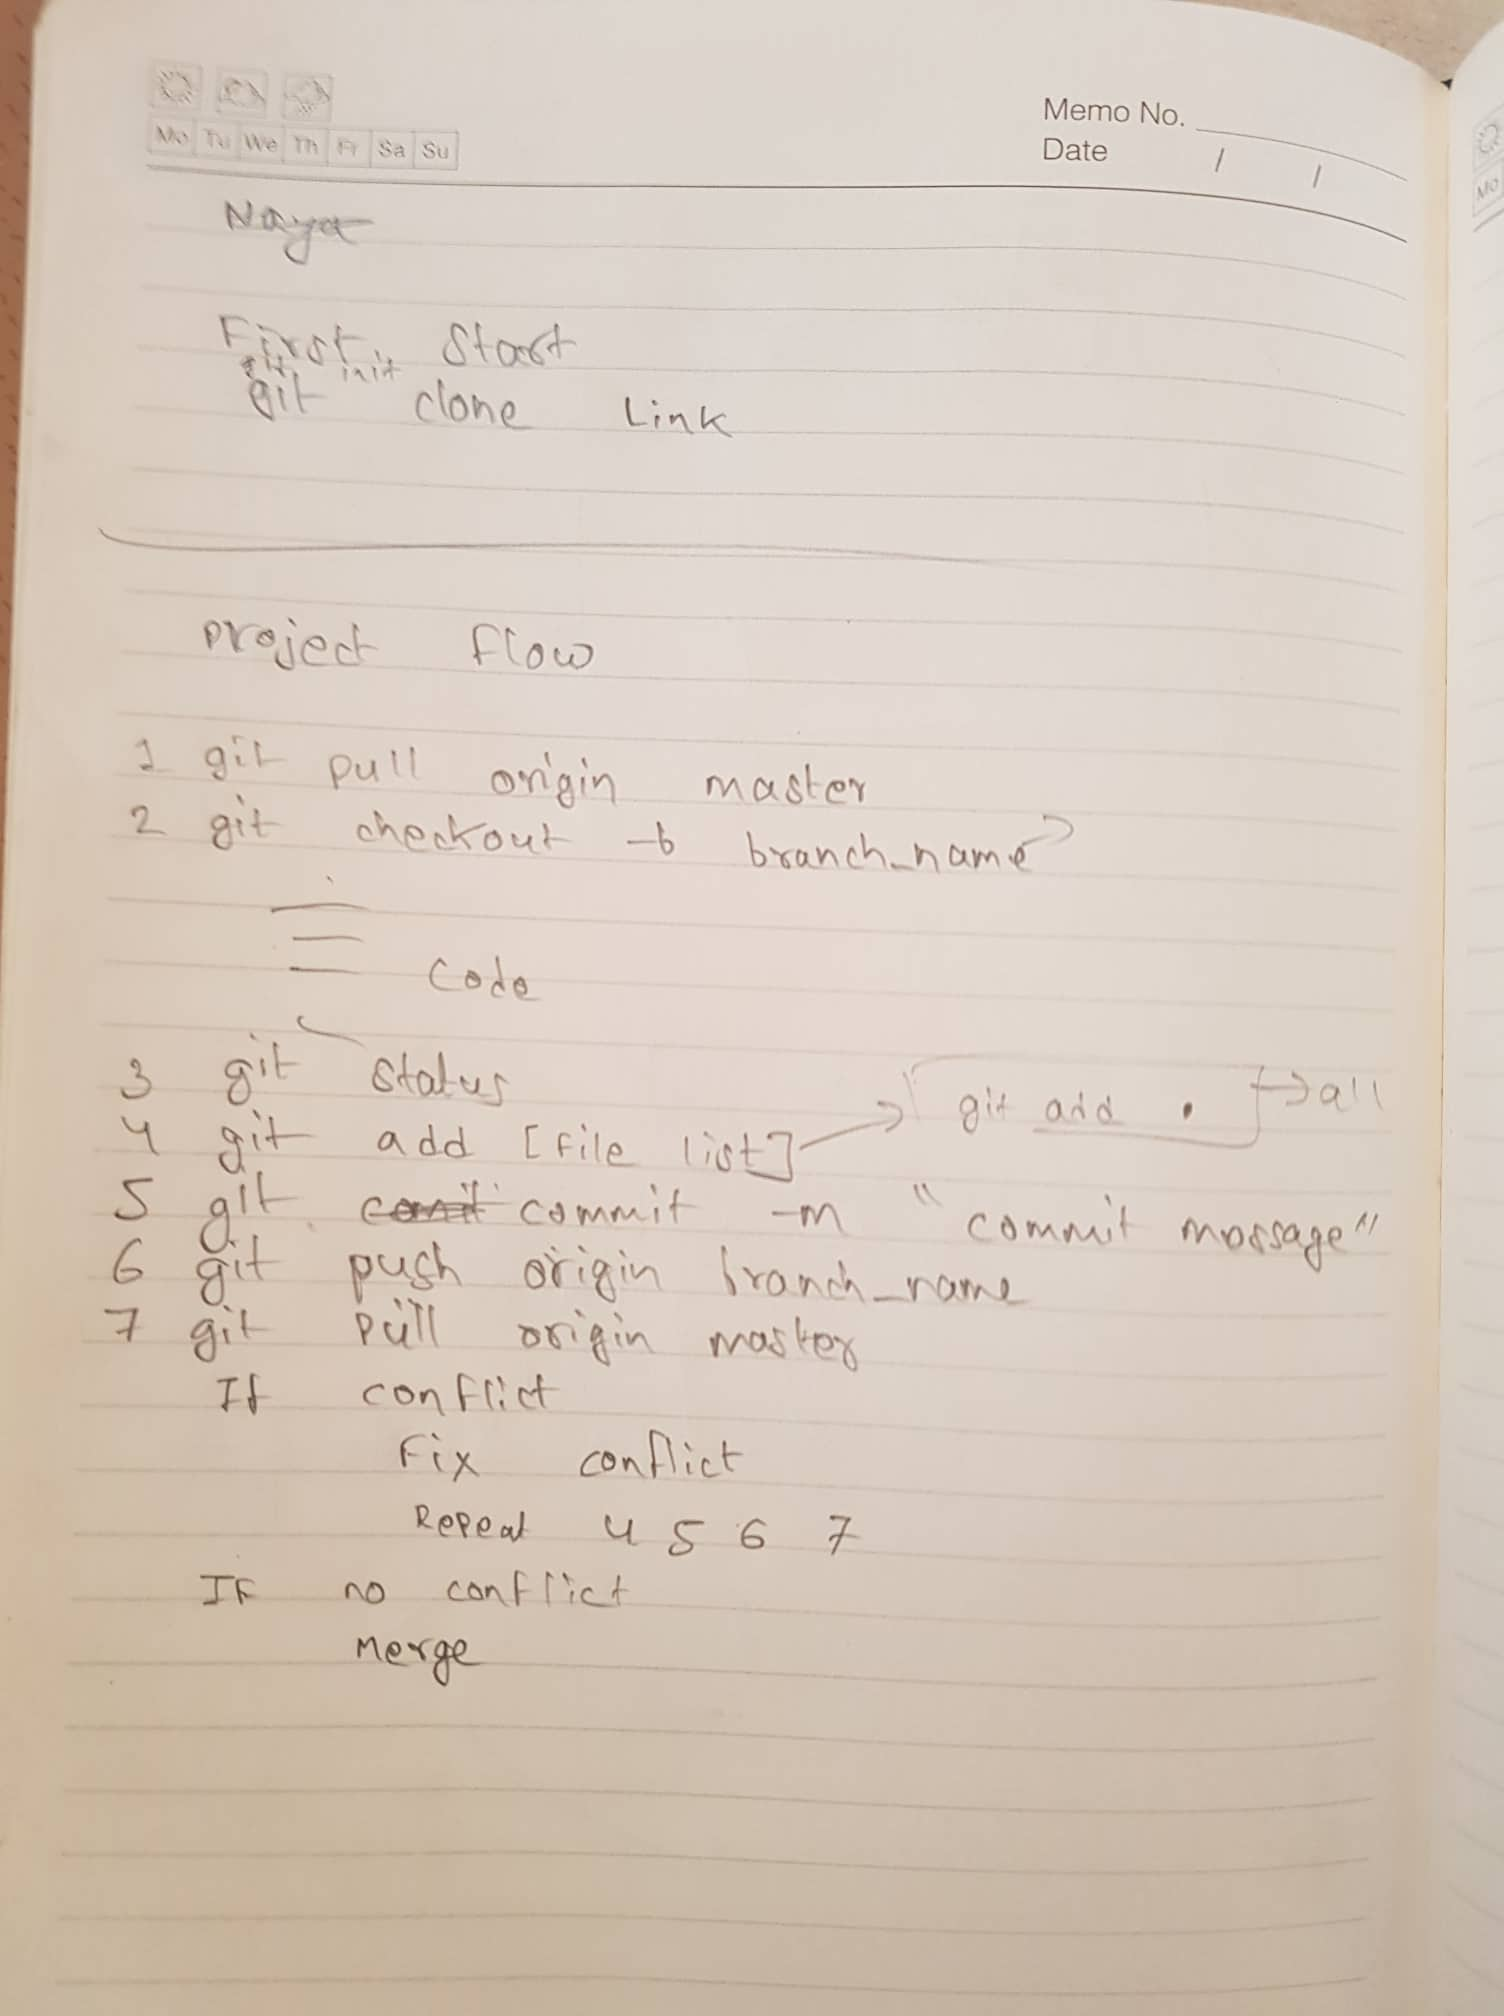 Mo Tu We Th Fr Sa Su
Memo No.
Date / /
Naya
First Start
git init
git clone Link
project flow
1 git pull origin master
2 git checkout -b branch_name
code
3 git status
4 git add [file list] → git add . → all
5 git commit -m "commit massage"
6 git push origin branch_name
7 git pull origin master
If conflict
Fix conflict
Repeat 4 5 6 7
If no conflict
Merge
Mo